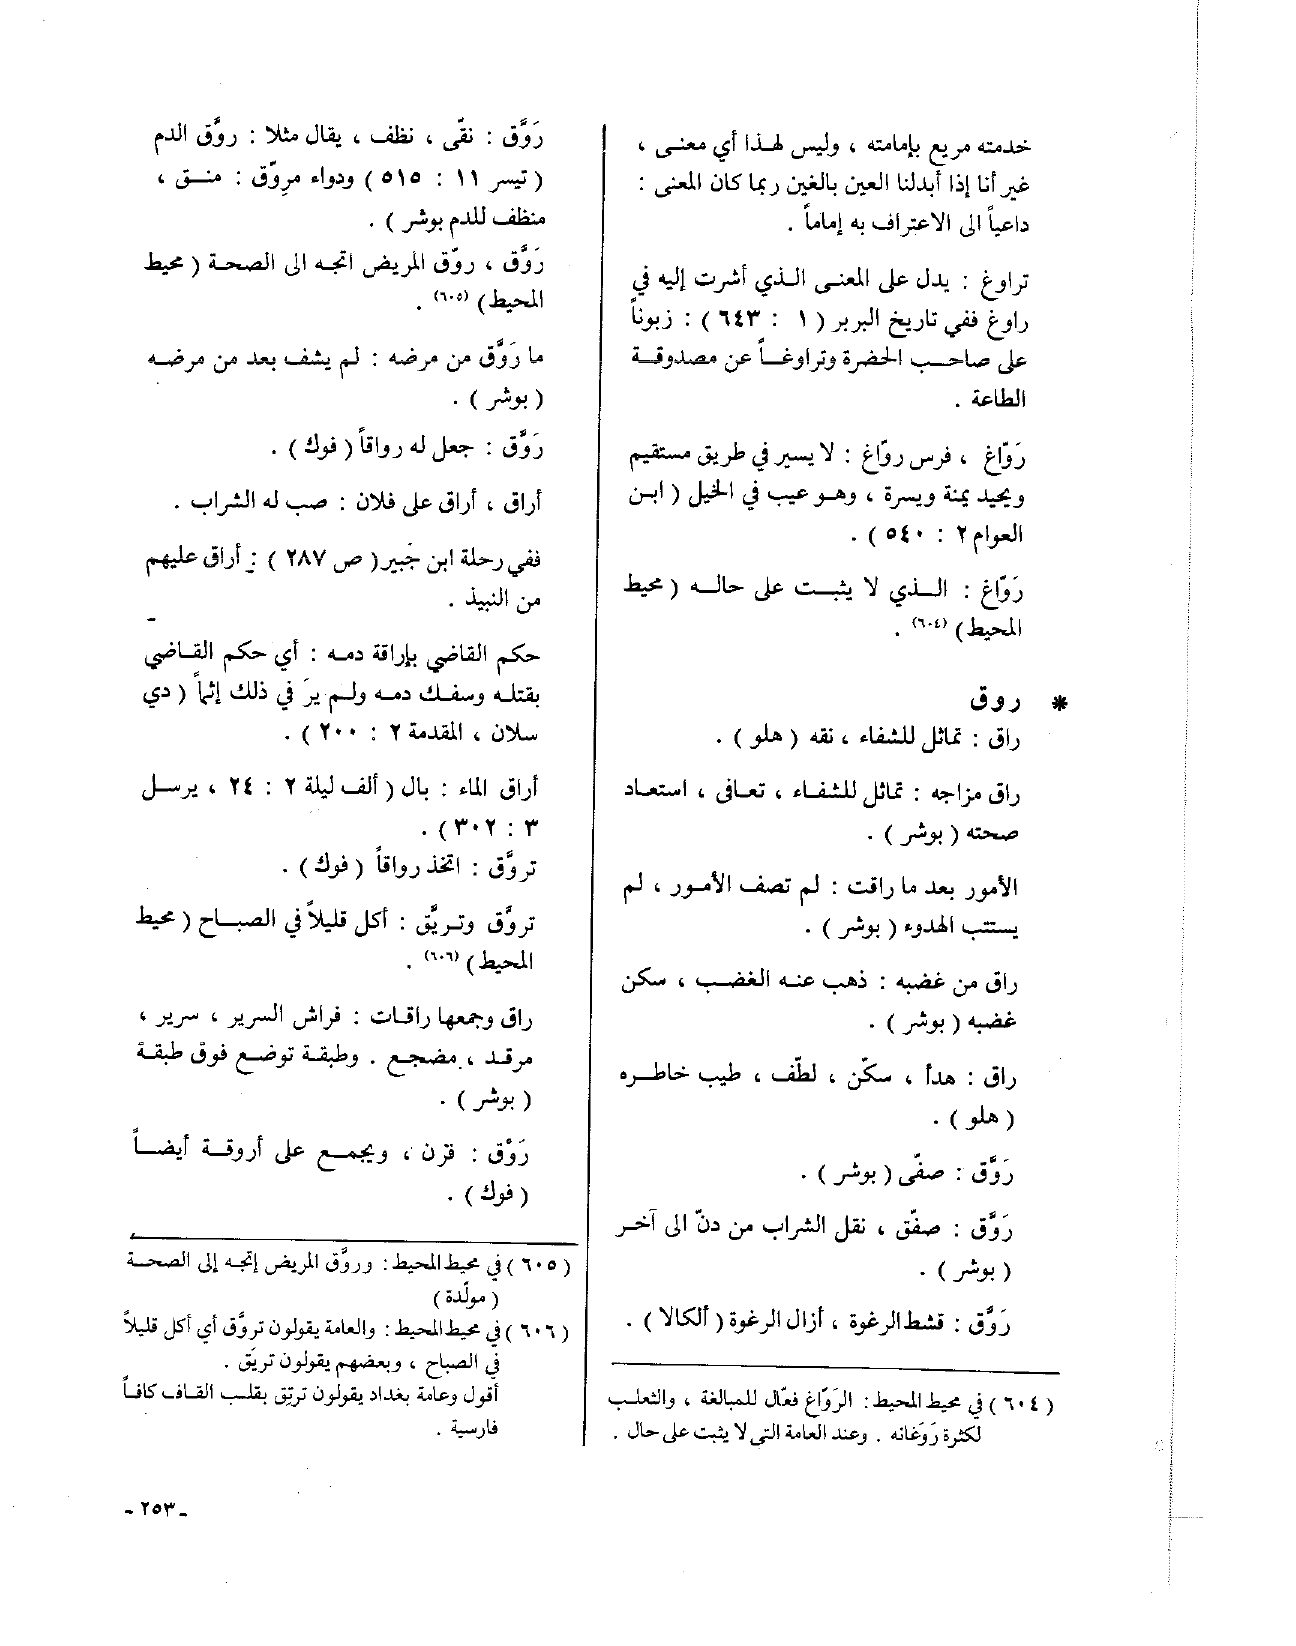 خدمته مريع بإمامته ، وليس لهذا أي معنى ،
غير أنا إذا أبدلنا العين بالغين ربما كان المعنى :
داعياً الى الاعتراف به إماماً .
تراوغ : يدل على المعنى الذي أشرت إليه في
راوغ ففي تاريخ البربر ( ١ : ٦٤٣ ) : زبوناً
على صاحب الحضرة وتراوغاً عن مصدوقة
الطاعة .
رَوّاغ ، فرس روّاغ : لا يسير في طريق مستقيم
ويحيد يمنة ويسرة ، وهو عيب في الخيل ( ابن
العوام ٢ : ٥٤٠ ) .
رَوّاغ : الذي لا يثبت على حاله ( محيط
المحيط ) (٦٠٤) .
* روق
راق : تماثل للشفاء ، نقه ( هلو ) .
راق مزاجه : تماثل للشفاء ، تعافى ، استعاد
صحته ( بوشر ) .
الأمور بعد ما راقت : لم تصف الأمور ، لم
يستتب الهدوء ( بوشر ) .
راق من غضبه : ذهب عنه الغضب ، سكن
غضبه ( بوشر ) .
راق : هدأ ، سكّن ، لطّف ، طيب خاطره
( هلو ) .
رَوَّق : صفّى ( بوشر ) .
رَوَّق : صفّق ، نقل الشراب من دنّ الى آخر
( بوشر ) .
رَوَّق : قشط الرغوة ، أزال الرغوة ( ألكالا ) .
( ٦٠٤ ) في محيط المحيط : الرَوّاغ فعّال للمبالغة ، والثعلب
لكثرة رَوَغانه . وعند العامة التي لا يثبت على حال .
رَوَّق : نقّى ، نظف ، يقال مثلا : روَّق الدم
( تيسر ١١ : ٥١٥ ) ودواء مروّق : منق ،
منظف للدم بوشر ) .
رَوَّق ، روّق المريض اتجه الى الصحة ( محيط
المحيط ) (٦٠٥) .
ما رَوَّق من مرضه : لم يشف بعد من مرضه
( بوشر ) .
رَوَّق : جعل له رواقاً ( فوك ) .
أراق ، أراق على فلان : صب له الشراب .
ففي رحلة ابن جُبير ( ص ٢٨٧ ) : أراق عليهم
من النبيذ .
حكم القاضي بإراقة دمه : أي حكم القاضي
بقتله وسفك دمه ولم يرَ في ذلك إثماً ( دي
سلان ، المقدمة ٢ : ٢٠٠ ) .
أراق الماء : بال ( ألف ليلة ٢ : ٢٤ ، يرسل
٣ : ٣٠٢ ) .
تروَّق : اتخذ رواقاً ( فوك ) .
تروَّق وتريَّق : أكل قليلاً في الصباح ( محيط
المحيط ) (٦٠٦) .
راق وجمعها راقات : فراش السرير ، سرير ،
مرقد ، مضجع . وطبقة توضع فوق طبقة
( بوشر ) .
رَوْق : قرن ، ويجمع على أروقة أيضاً
( فوك ) .
( ٦٠٥ ) في محيط المحيط : وروَّق المريض إتجه إلى الصحة
( مولّدة )
( ٦٠٦ ) في محيط المحيط : والعامة يقولون تروَّق أي أكل قليلاً
في الصباح ، وبعضهم يقولون تريَق .
أقول وعامة بغداد يقولون تريّق بقلب القاف كافاً
فارسية .
ـ ٢٥٣ ـ